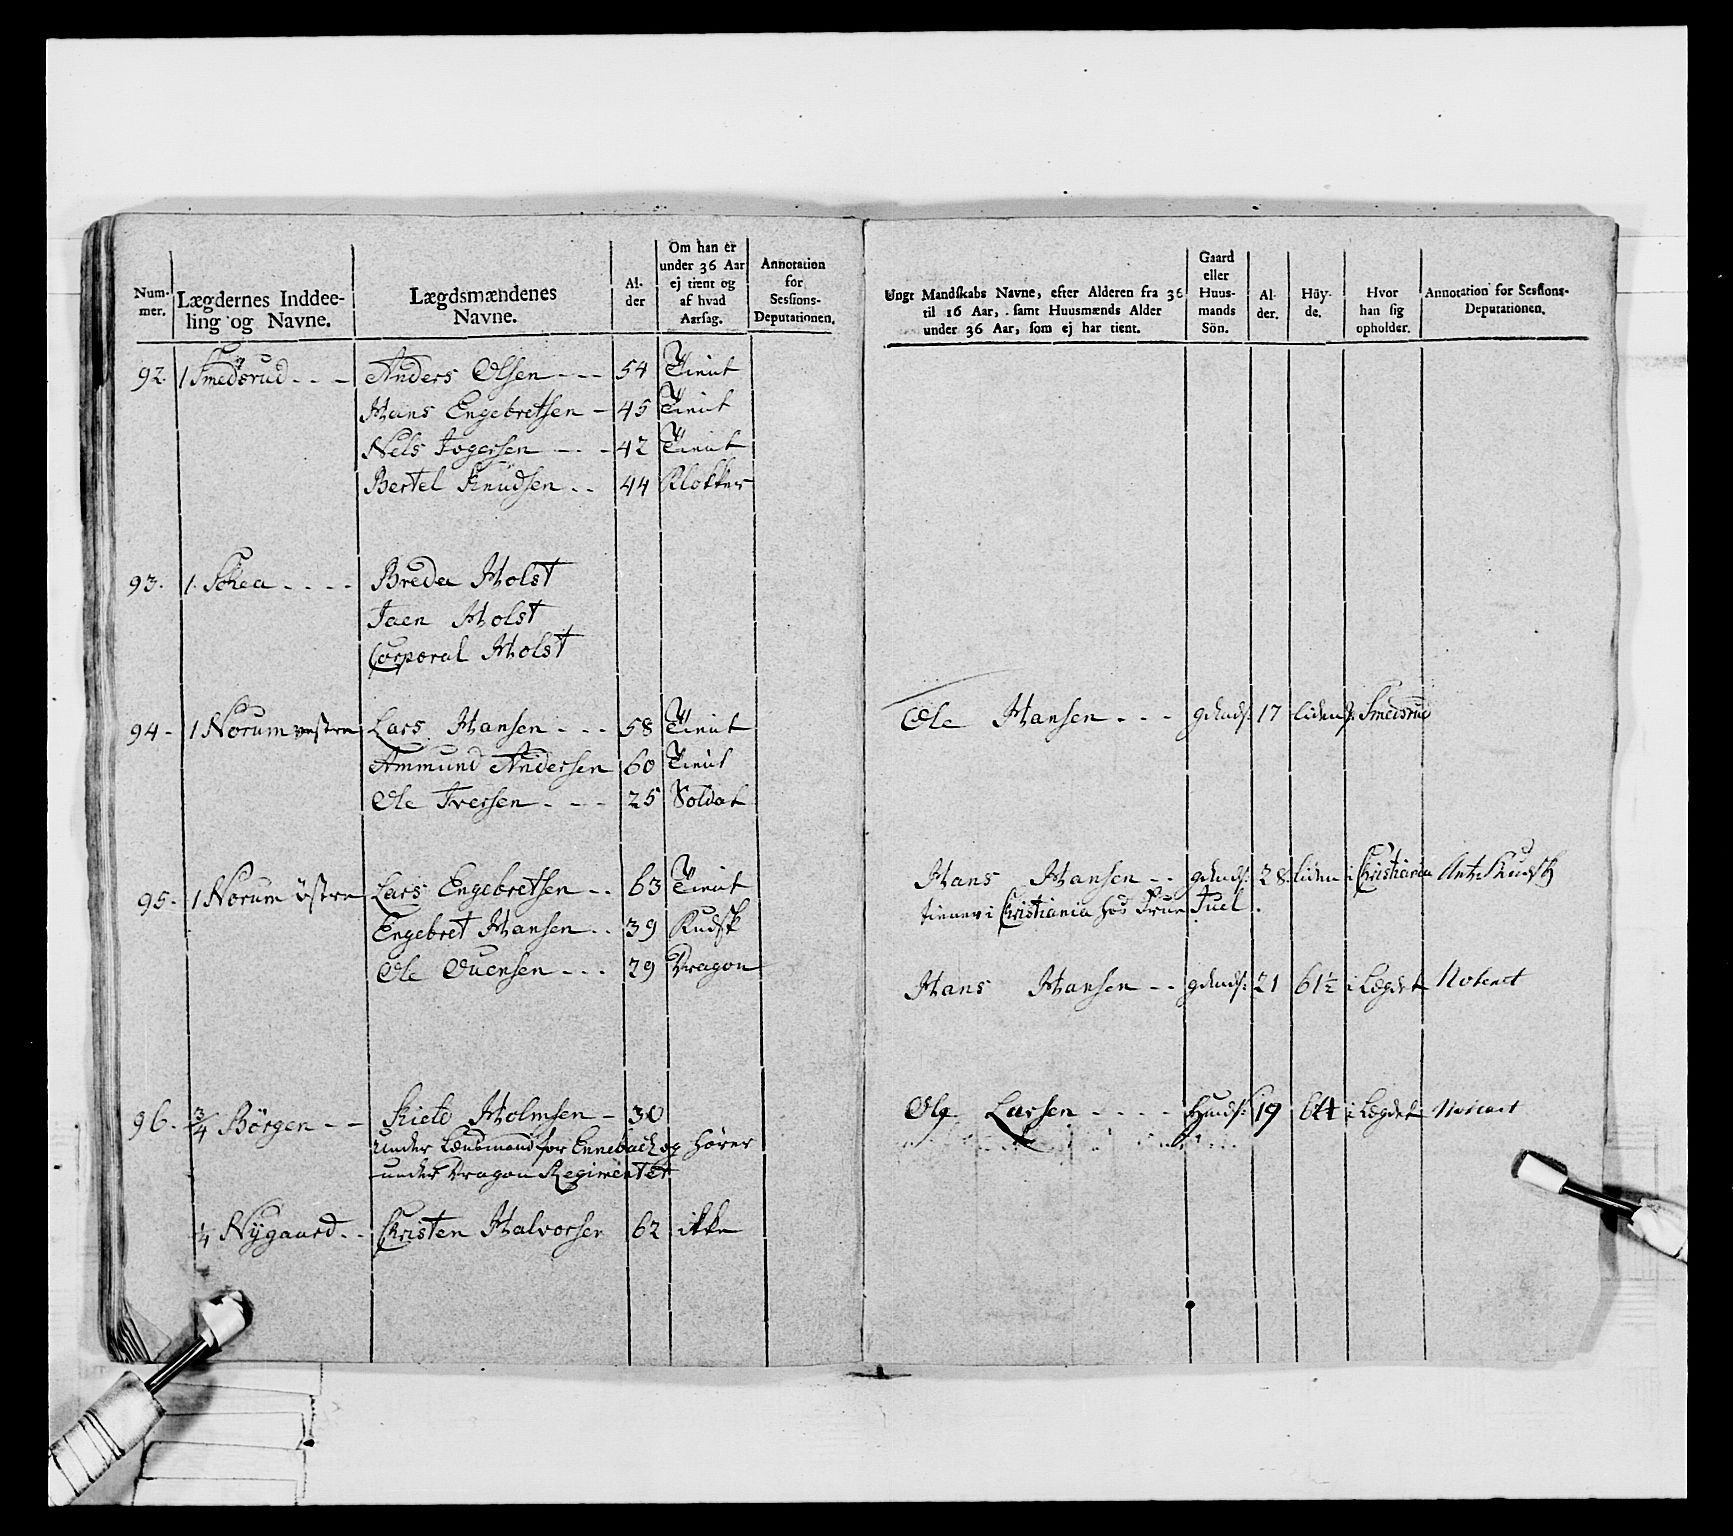 Num-
mer.
Lægdernes Inddee-
ling og Navne.
Lægdsmændenes
Navne.
Al-
der
Om han er
under 36 Aar
ej tient og
af hvad
Aarsag.
Annotation
for
Sessions-
Deputationen.
92. 1 Smedsrud - - - Anders Olsen - - - 54 Tient
Hans Engebretsen - 45 Tient
Nels Jogersen - - - 42 Tient
Bertel Knudsen - - 44 Klokker
93. 1. - - - - Breda Holst
Jaen Holst
Corporal Holst
94 - 1 Norum vestre Lars Hansen - - - 58 Tient
Ammund Andersen 60 Tient
Ole Iversen - - - 25 Soldat
95 - 1 Norum östre Lars Engebretsen - - 63 Tient
Engebret Hansen - - 39 Kudsk
Ole Ouensen - - - 29 Dragon
96. 3/4 Börgen - - Holmsen - 30
under Lænsmand for Ennebach og hörer
under Dragon Regimentet
1/4 Nÿgaard - - Christen Halvorsen 62 ikke
Ungt Mandskabs Navne, efter Alderen fra 36
til 16 Aar, samt Huusmænds Alder
under 36 Aar, som ej har tient.
Gaard
eller
Huus-
mands
Sön.
Al-
der.
Höy-
de.
Hvor
han sig
opholder.
Annotation for Sessions-
Deputationen.
Ole Hansen - - - 17 liden Smedsrud
Hans Hansen - - 28 liden i Christiania
tiener i Christiania hos Frue Juel.
Hans Hansen - - 21 61½ i Lægdet Noteret
Ole Larsen - - - - 19 64 i Lægdet Noteret